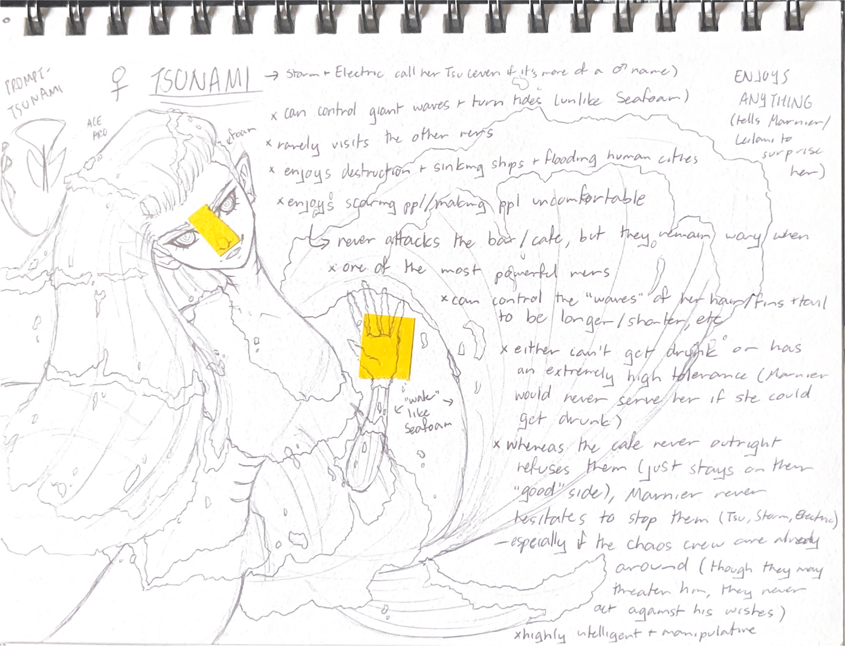 PROMPT-
TSUNAMI
♀ TSUNAMI → Storm + Electric call her Tsu (even if it's more of a ♂ name)
ACE
ARO
foam
ENJOYS
ANYTHING
(tells Marnier/
Leilani to
surprise
her)
x can control giant waves + turn tides (unlike Seafoam)
x rarely visits the other mers
x enjoys destruction + sinking ships + flooding human cities
x enjoys scaring ppl/making ppl uncomfortable
↳ never attacks the bar/cafe, but they remain wary when
x one of the most powerful mers
x can control the "waves" of her hair/fins + tail
to be longer/shorter, etc
x either can't get drunk or has
an extremely high tolerance (Marnier
would never serve her if she could
get drunk)
"wake"
like
Seafoam
x whereas the cafe never outright
refuses them (just stays on their
"good" side), Marnier never
hesitates to stop them (Tsu, Storm, Electric)
- especially if the chaos crew are already
around (though they may
threaten him, they never
act against his wishes)
x highly intelligent + manipulative